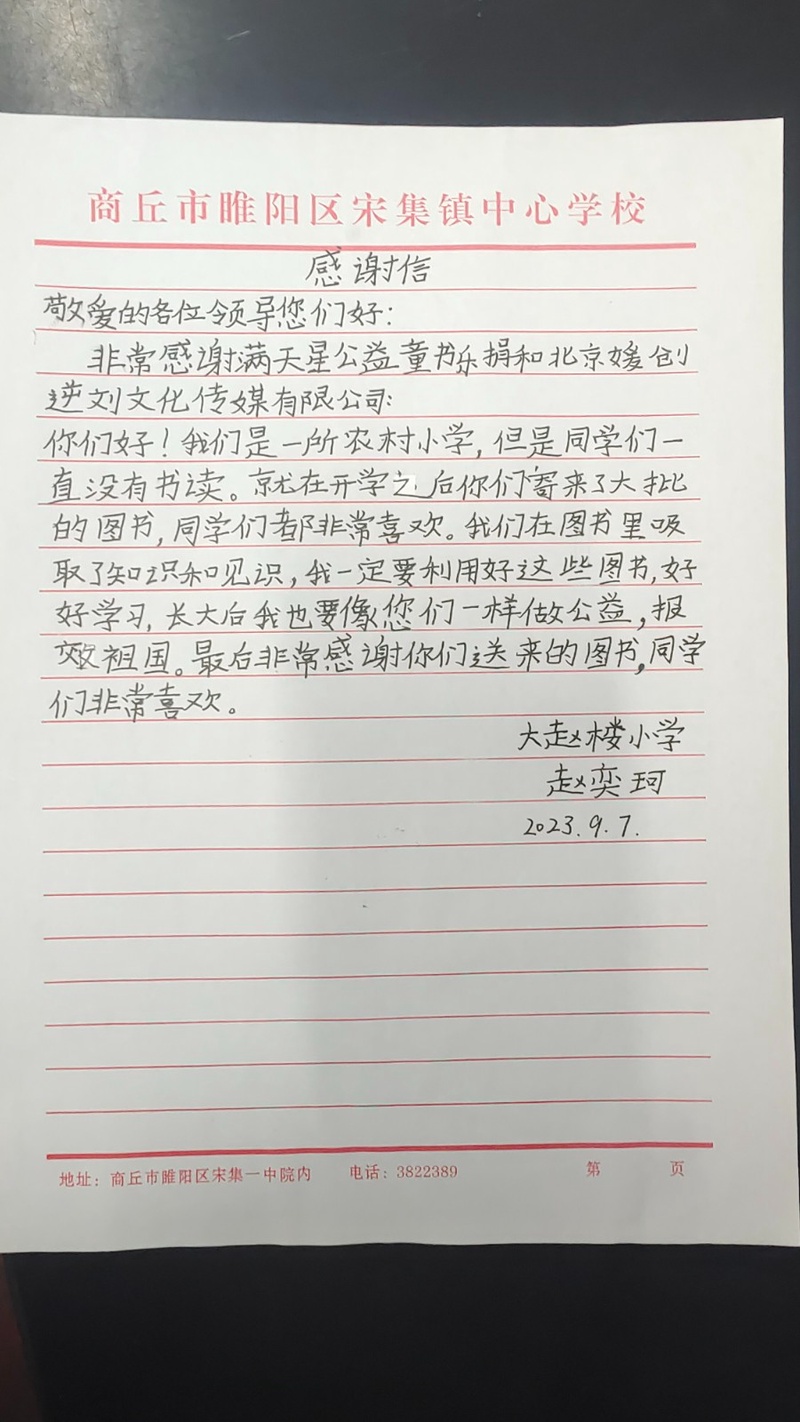 商丘市睢阳区宋集镇中心学校
感谢信
敬爱的各位领导您们好：
非常感谢满天星公益童书乐捐和北京媛创
逆刘文化传媒有限公司：
你们好！我们是一所农村小学，但是同学们一
直没有书读。就在开学之后你们寄来了大批
的图书，同学们都非常喜欢。我们在图书里吸
取了知识和见识，我一定要利用好这些图书，好
好学习，长大后我也要像您们一样做公益，报
效祖国。最后非常感谢你们送来的图书，同学
们非常喜欢。
大赵楼小学
赵奕珂
2023.9.7.
地址：商丘市睢阳区宋集一中院内 电话：3822389 第 页